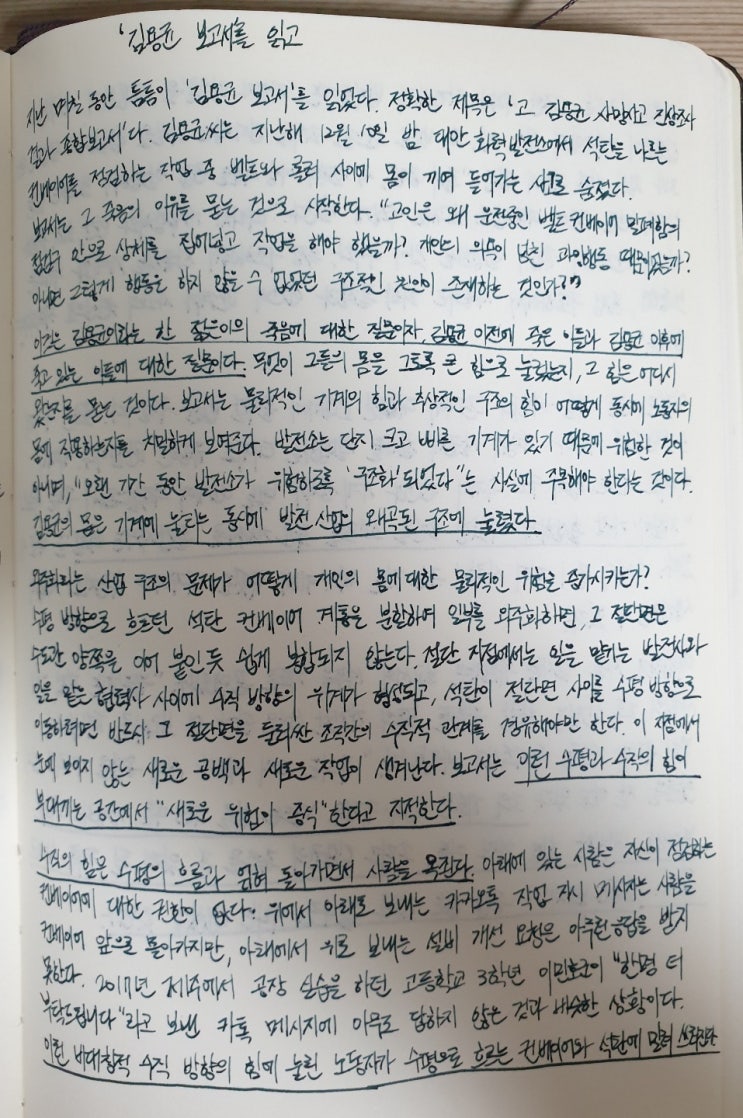 '김용균 보고서'를 읽고
지난 며칠 동안 틈틈이 '김용균 보고서'를 읽었다. 정확한 제목은 '고 김용균 사망사고 진상조사
결과 종합보고서'다. 김용균씨는 지난해 12월 10일 밤 태안 화력발전소에서 석탄을 나르는
컨베이어를 점검하는 작업 중 벨트와 롤러 사이에 몸이 끼어 들어가는 사고로 숨졌다.
보고서는 그 죽음의 이유를 묻는 것으로 시작한다. "고인은 왜 운전중인 벨트 컨베이어 밀폐함의
점검구 안으로 상체를 집어넣고 작업을 해야 했을까? 개인의 의욕이 넘친 과잉행동 때문이었는가?
아니면 그렇게 행동을 하지 않을 수 없었던 구조적인 원인이 존재하는 것인가?"
이것은 김용균이라는 한 젊은이의 죽음에 대한 질문이자, 김용균 이전에 죽은 이들과 김용균 이후에
죽고 있는 이들에 대한 질문이다. 무엇이 그들의 몸을 그토록 큰 힘으로 눌렀는지, 그 힘은 어디서
왔는지를 묻는 것이다. 보고서는 물리적인 기계의 힘과 추상적인 구조의 힘이 어떻게 동시에 노동자의
몸에 작용하는지를 치밀하게 보여준다. 발전소는 단지 크고 빠른 기계가 있기 때문에 위험한 것이
아니며, "오랜 기간 동안 발전소가 위험하도록 '구조화'되었다"는 사실에 주목해야 한다는 것이다.
김용균의 몸은 기계에 눌리는 동시에 발전 산업의 왜곡된 구조에 눌렸다.
외주화라는 산업 구조의 문제가 어떻게 개인의 몸에 대한 물리적인 위험을 증가시키는가?
수평 방향으로 흐르던 석탄 컨베이어 계통을 분할하여 일부를 외주화하면, 그 절단면은
수도관 양쪽을 이어 붙인 듯 쉽게 봉합되지 않는다. 절단 지점에서는 일을 맡기는 발전사와
일을 맡은 협력사 사이에 수직 방향의 위계가 형성되고, 석탄이 절단면 사이를 수평 방향으로
이동하려면 반드시 그 절단면을 둘러싼 조직간의 수직적 관계를 경유해야만 한다. 이 지점에서
눈에 보이지 않는 새로운 공백과 새로운 작업이 생겨난다. 보고서는 이런 수평과 수직의 힘이
부대끼는 공간에서 "새로운 위험이 증식"한다고 지적한다.
수직의 힘은 수평의 흐름과 얽혀 돌아가면서 사람을 옥죈다. 아래에 있는 사람은 자신이 점검하는
컨베이어에 대한 권한이 없다. 위에서 아래로 보내는 카카오톡 작업 지시 메시지는 사람을
컨베이어 앞으로 몰아가지만, 아래에서 위로 보내는 설비 개선 요청은 아무런 응답을 받지
못한다. 2017년 제주에서 공장 실습을 하던 고등학교 3학년 이민호군이 "한명 더
부탁드립니다"라고 보낸 카톡 메시지에 아무도 답하지 않은 것과 비슷한 상황이다.
이런 비대칭적 수직 방향의 힘에 눌린 노동자가 수평으로 흐르는 컨베이어와 석탄에 밀려 쓰러진다